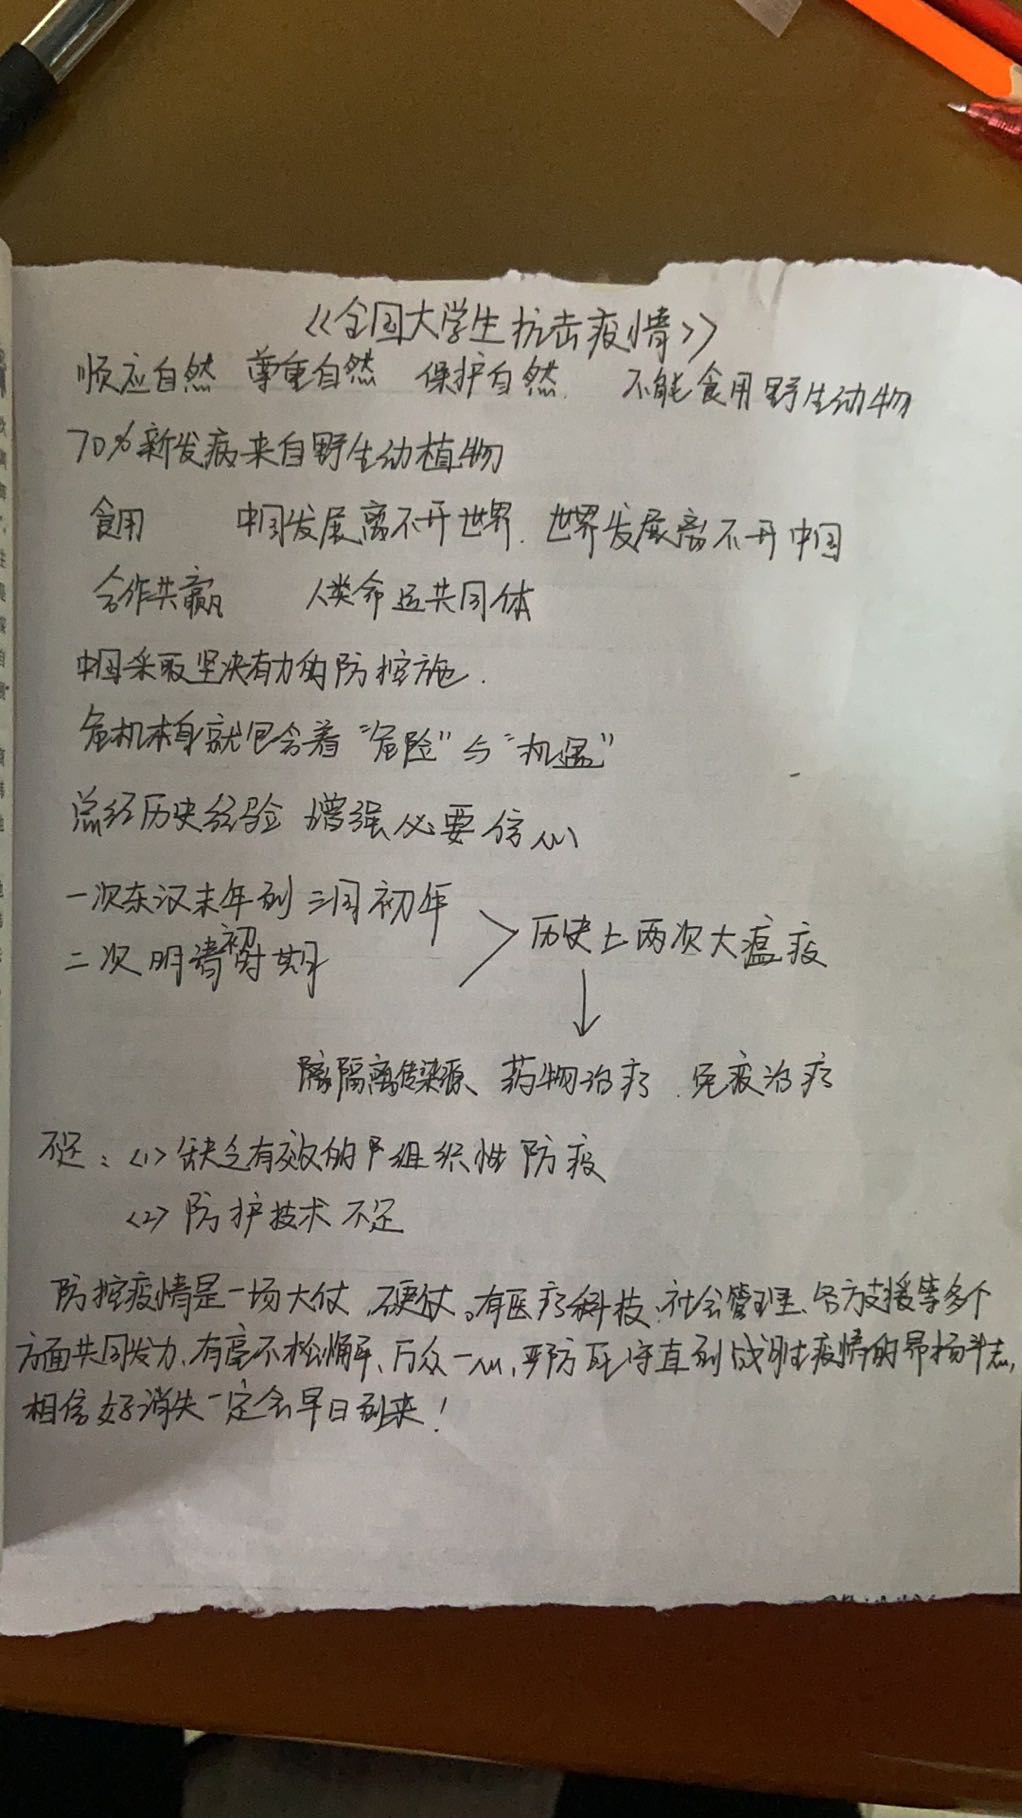 《全国大学生抗击疫情》
顺应自然 尊重自然 保护自然. 不能食用野生动物
70%新发病来自野生动植物
食用 中国发展离不开世界. 世界发展离不开中国
合作共赢 人类命运共同体
中国采取坚决有力的防控施.
危机本身就包含着“危险”与“机遇”
总经历史经验 增强必要信心
一次东汉末年到三国初年
二次明清初时期
历史上两次大瘟疫
隔离传染源、药物治疗.免疫治疗
不足:<1>缺乏有效的组织性防疫
<2>防护技术不足
防控疫情是一场大仗,硬仗。有医疗科技、社会管理、各方支援等多个
方面共同发力、有毫不松懈、万众一心、严防死守直到战胜疫情的昂扬斗志,
相信好消失一定会早日到来!